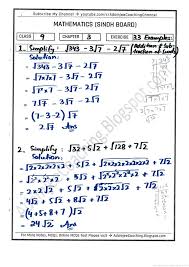 Subscribe My Channel ▶ youtube.com/c/AdamjeeCoachingChannel
MATHEMATICS (SINDH BOARD)
CLASS 9 CHAPTER 3 EXERCISE 3.3 Examples
1. Simplify: √343 - 3√7 - 2√7 (Addition & Sub-
traction of surds)
Solution:
= √343 - 3√7 - 2√7
= √7×7×7 - 3√7 - 2√7
= 7√7 - 3√7 - 2√7
= (7-3-2)√7
= 2√7 Ans
2. Simplify: √32 + 5√2 + √128 + 7√2
Solution:
= √32 + 5√2 + √128 + 7√2
= √2×2×2×2×2 + 5√2 + √2×2×2×2×2×2×2 + 7√2
= 2×2√2 + 5√2 + 2×2×2√2 + 7√2
= 4√2 + 5√2 + 8√2 + 7√2
= (4+5+8+7)√2
= 24√2 Ans
For More Notes, MCQs, Online MCQs Test Please Visit → AdamjeeCoaching.Blogspot.com